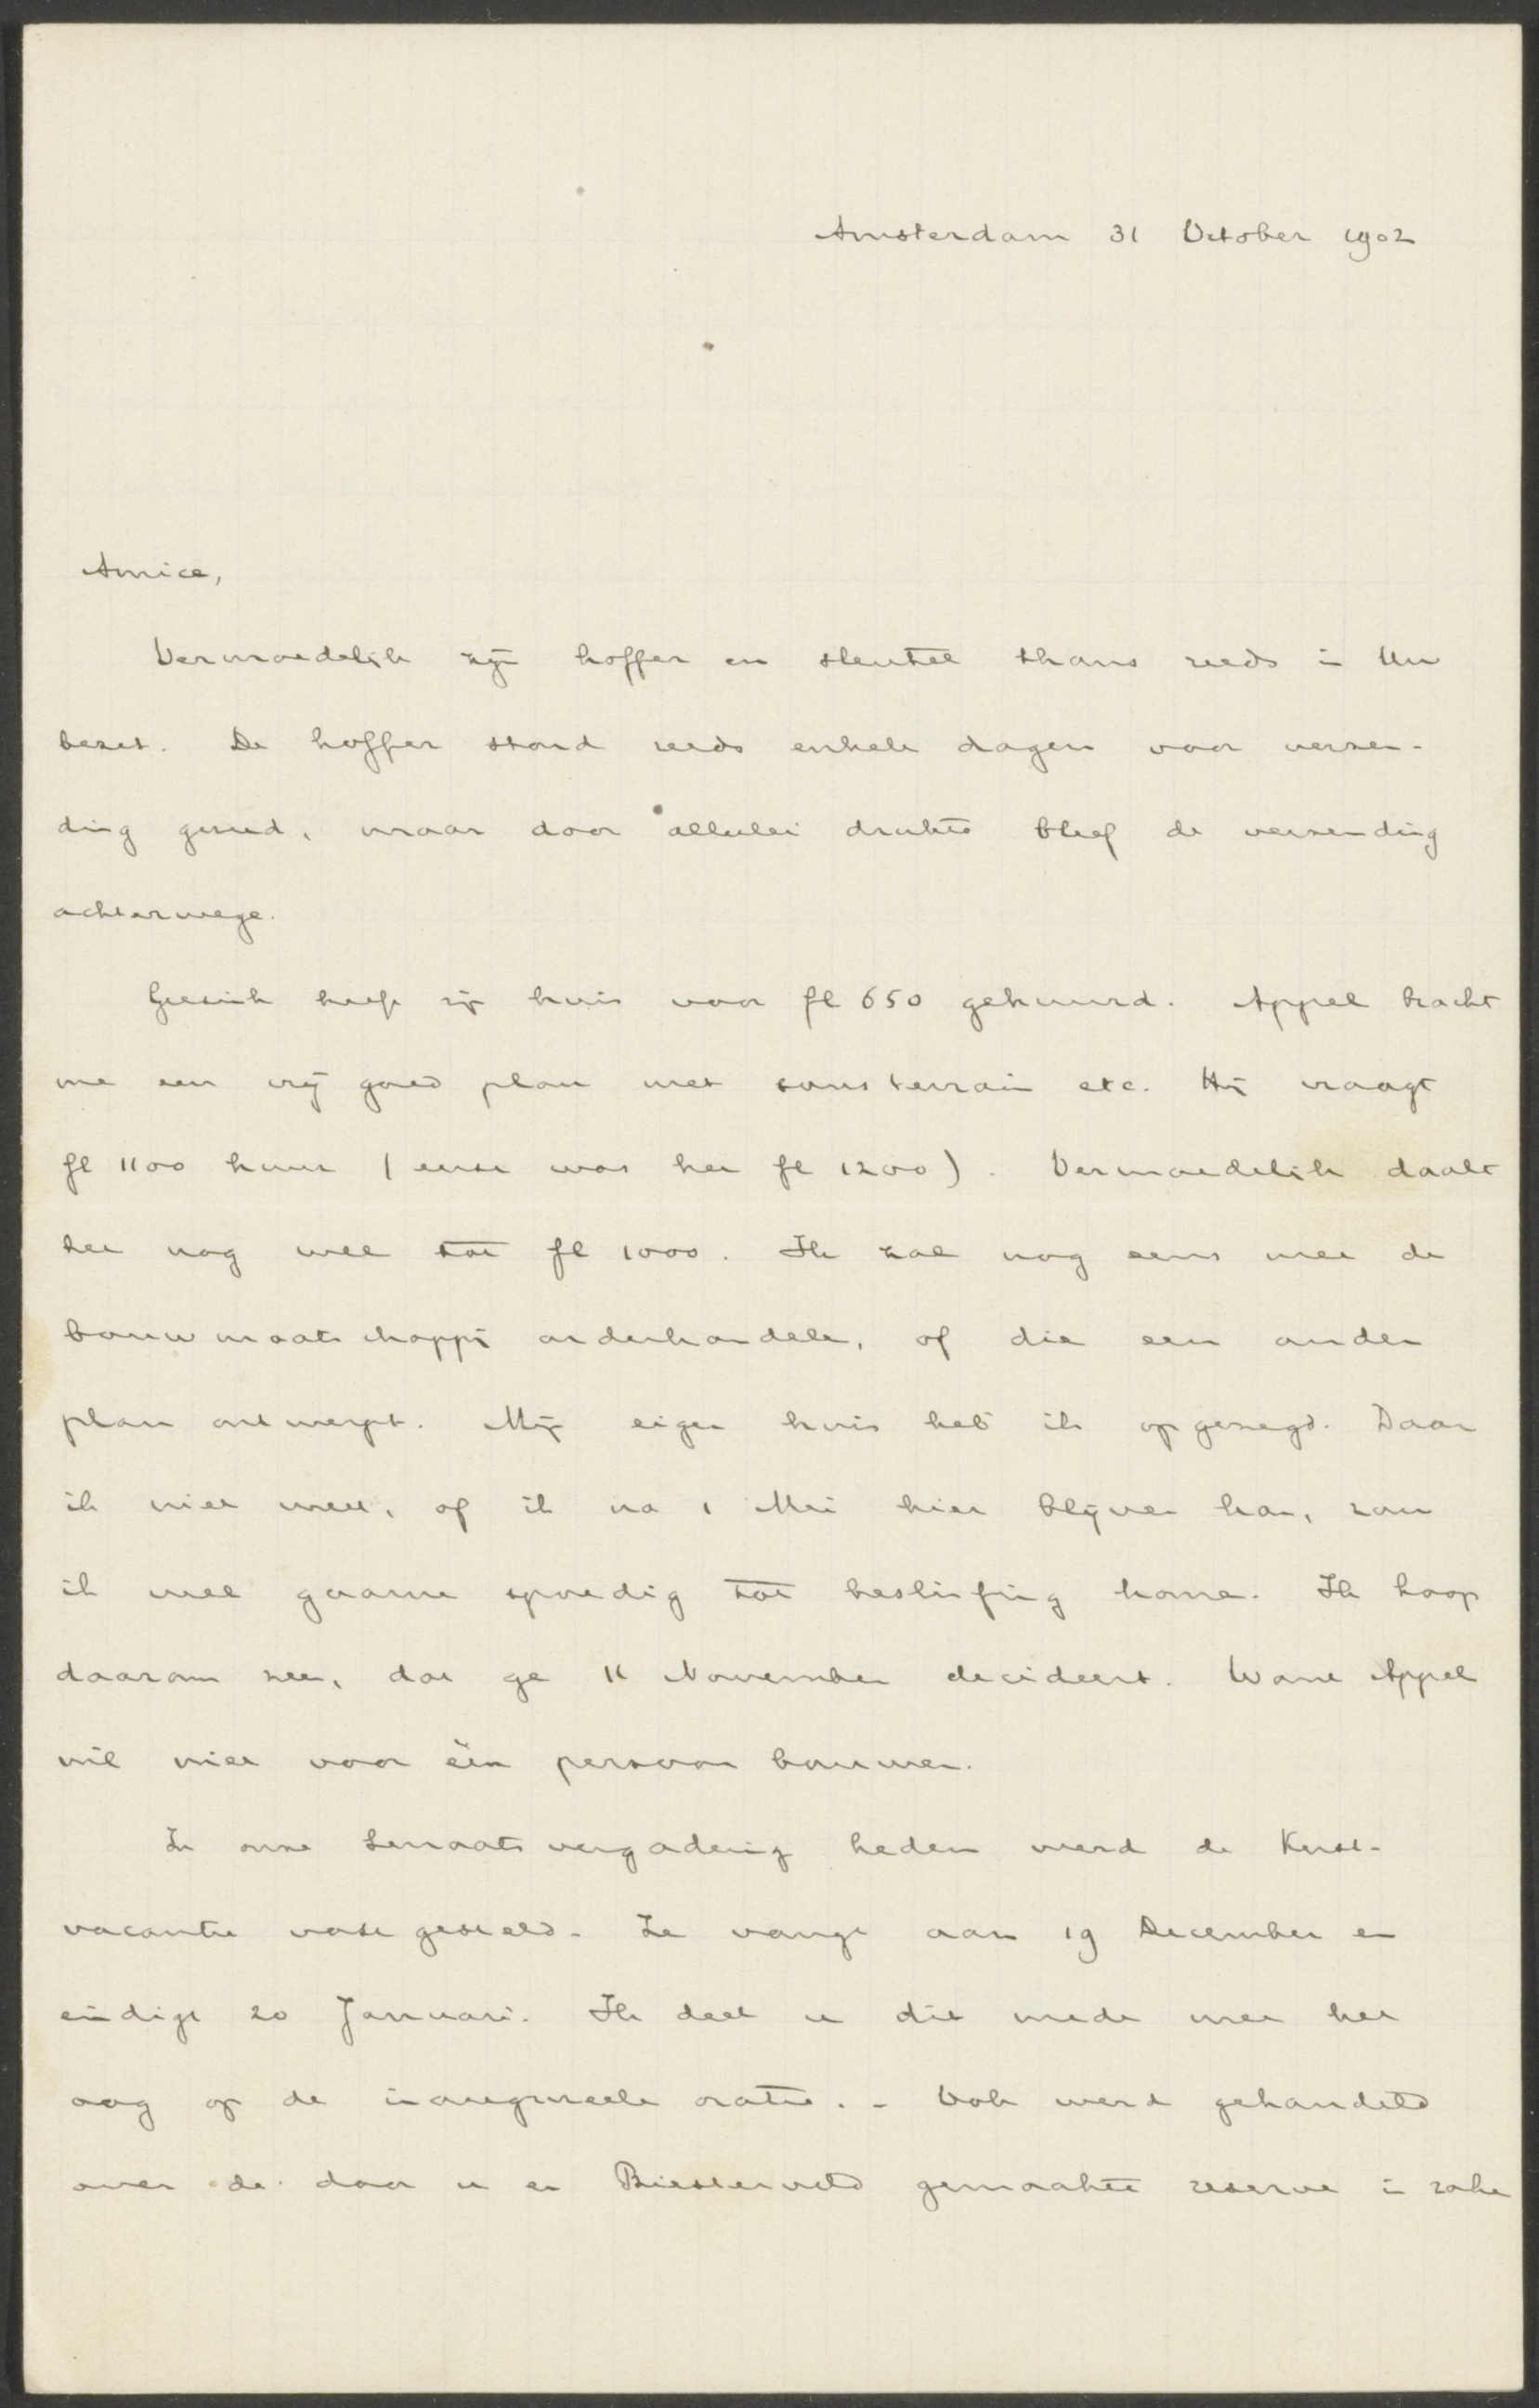 Amsterdam 31 October 1902
Amice,
Vermoedelijk zijn koffer en sleutel thans reeds in Uw
bezit. De koffer stond reeds enkele dagen voor verzen-
ding gereed, maar door allerlei drukte bleef de verzending
achterwege.
Geesink heeft zijn huis voor fl 650 gehuurd. Appel bracht
me een vrij goed plan met sousterrain etc. Hij vraagt
fl 1100 huur (eerst was het fl 1200). Vermoedelijk daalt
het nog wel tot fl 1000. Ik zal nog eens met de
bouwmaatschappij onderhandelen, of die een ander
plan ontwerpt. Mijn eigen huis heb ik opgezegd. Daar
ik niet weet, of ik na 1 Mei hier blijven kan, zou
ik wel gaarne spoedig tot beslissing komen. Ik hoop
daarom zeer, dat ge 11 November decideert. Want Appel
wil niet voor één persoon bouwen.
In onze Senaatsvergadering heden werd de Kerst-
vacantie vastgesteld. Ze vangt aan 19 December en
eindigt 20 Januari. Ik deel u dit mede met het
oog op de inaugureele oratie. - Ook werd gehandeld
over de door u en Biesterveld gemaakte reserve in zake